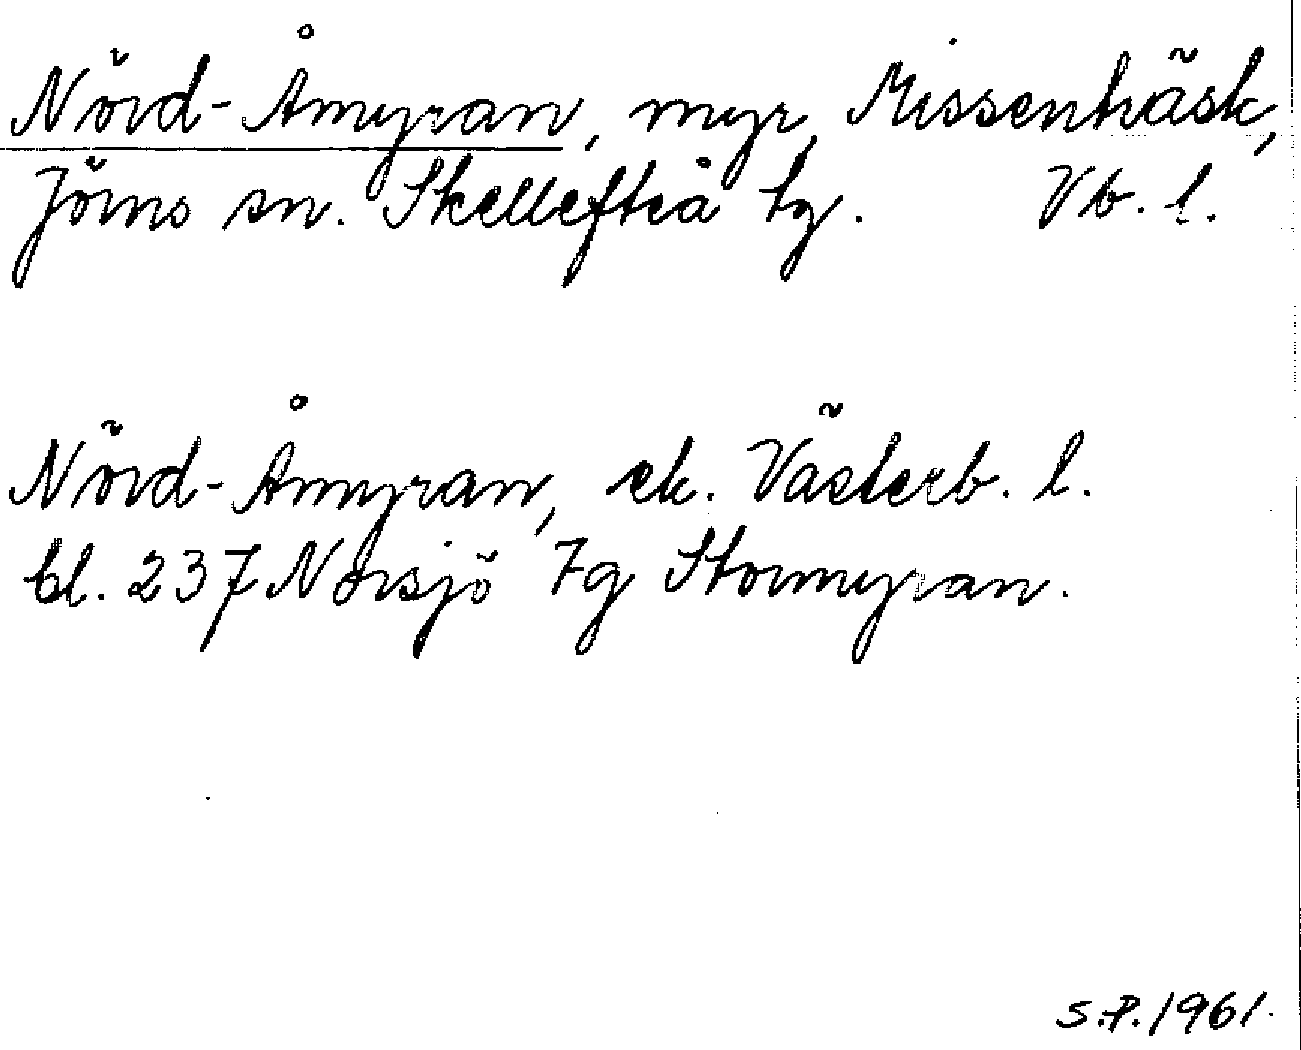 Nörd-Åmyran, myr, Missenträsk,
Jörns sn. Skellefteå tg. Vb. l.
Nörd-Åmyran, ek. Västerb. l.
bl. 237 Norsjö 7g Stormyran.
S.P. 1961.